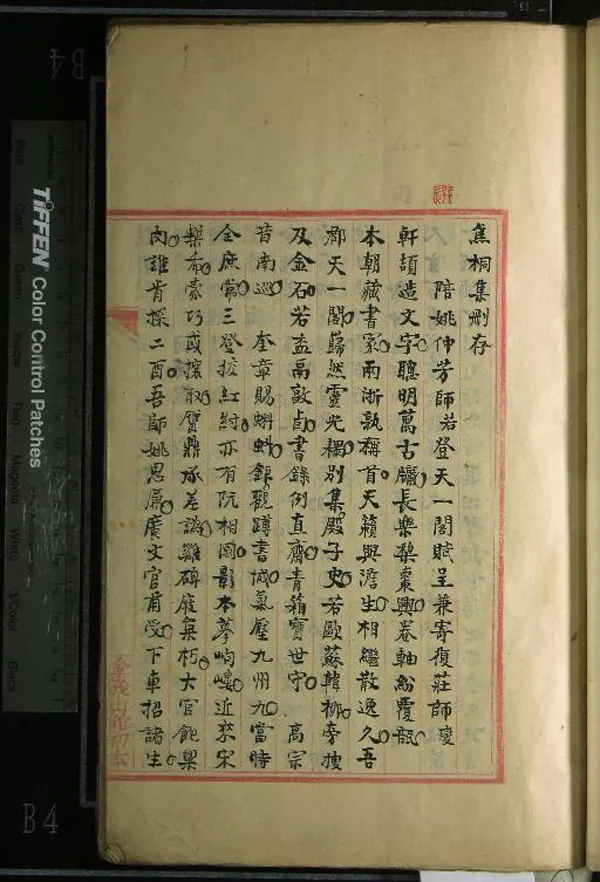 焦桐集刪存
陪姚仲芳師若登天一閣賦呈兼寄復莊師燮
軒頡造文字聰明萬古牖長樂梨棗興卷軸紛覆瓿
本朝藏書家兩浙孰稱首天籟與澹生相繼散逸久吾
郡天一閣巋然靈光耦別集殿子史若歐蘇韓柳旁搜
及金石若盉鬲敦卣書錄例直齋青箱寶世守 高宗
昔南巡 奎章賜蝌蚪錦觀蹲書城氣壓九州九當時
全庶常三登挍紅紂亦有阮相國影本摹岣嶁近來宋
槧希豪巧或攘取贋鼎承差譌雞碑廢棄朽大官飽粱
肉誰肯探二酉吾師姚思廉廣文官甫受下車招諸生
TIFFEN Color Control Patches
Blue
Cyan
Green
Yellow
Red
Magenta
White
3/Color
Black
B4
B4